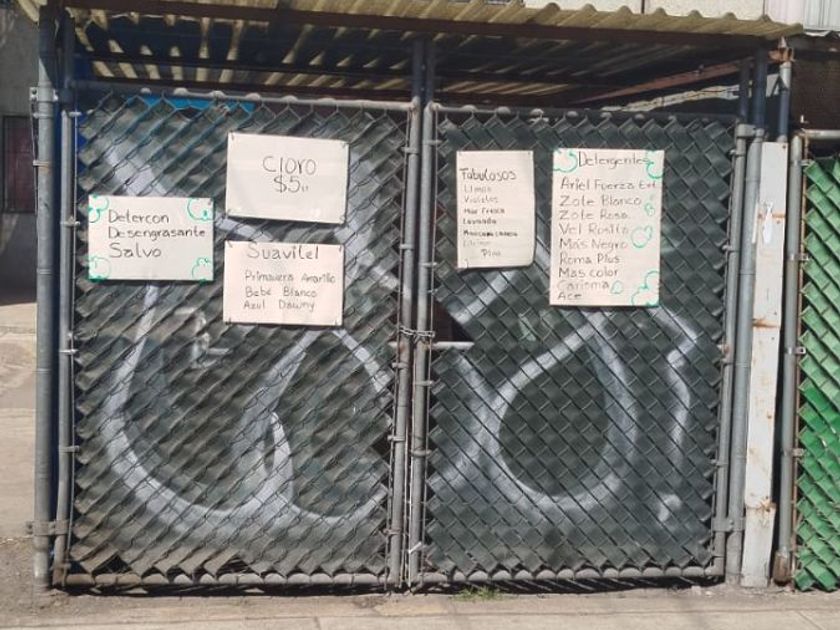 Detercon
Desengrasante
Salvo
Cloro
$5
Suavitel
Primavera Amarillo
Bebé Blanco
Azul Dawny
Fabulosos
Limon
Violetas
Mar Fresco
Lavanda
Manzana canela
Pino
Detergentes
Ariel Fuerza Ext
Zote Blanco
Zote Rosa
Vel Rosita
Más Negro
Roma Plus
Mas color
Carisma
Ace